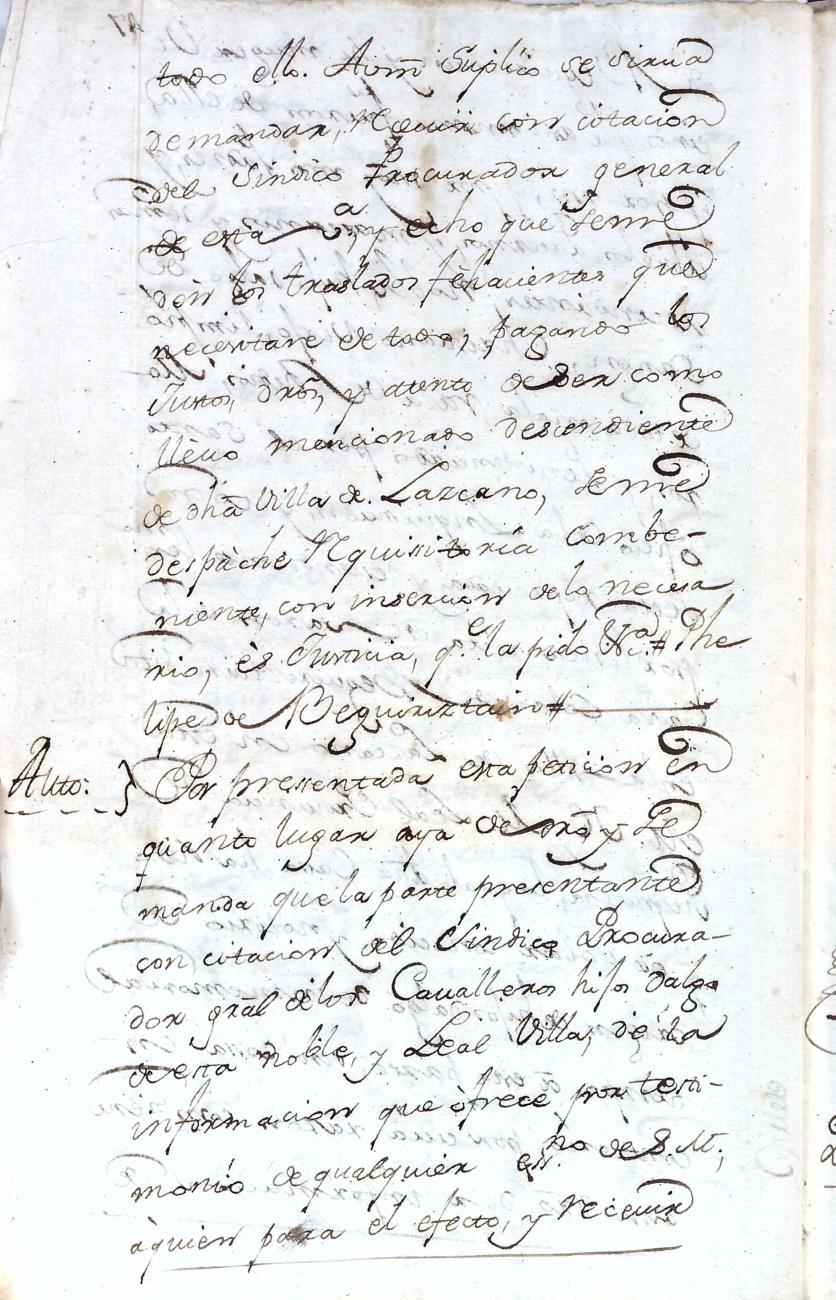 todo ello. Avm Suplico se sirua
demandar, recivir con citacion
del Sindico Procurador general
de esta v.ª, y echo que seme
dèn los traslados fehacientes que
necesitare de todo, pagando los
Justos, dros, y atento de ser como
llevo mencionado descendiente
de dha Villa de Lazcano, seme
despache Rquisitoria combe-
niente, con insercion delo necesa
rio, ès Justicia, q.e la pido #Phe
lipe de Beguiriztain#
Auto: } Por presentada esta peticion en
quanto lugar aya de dro, y se
manda que la parte presentante
con citacion del Sindico Procura-
dor gral delos Cavalleros hijos dalgo
de esta noble, y Leal Villa, dè la
informacion que òfrece por testi-
monio de qualquier ess.no de S. M.,
àquien para el efecto, y recevir